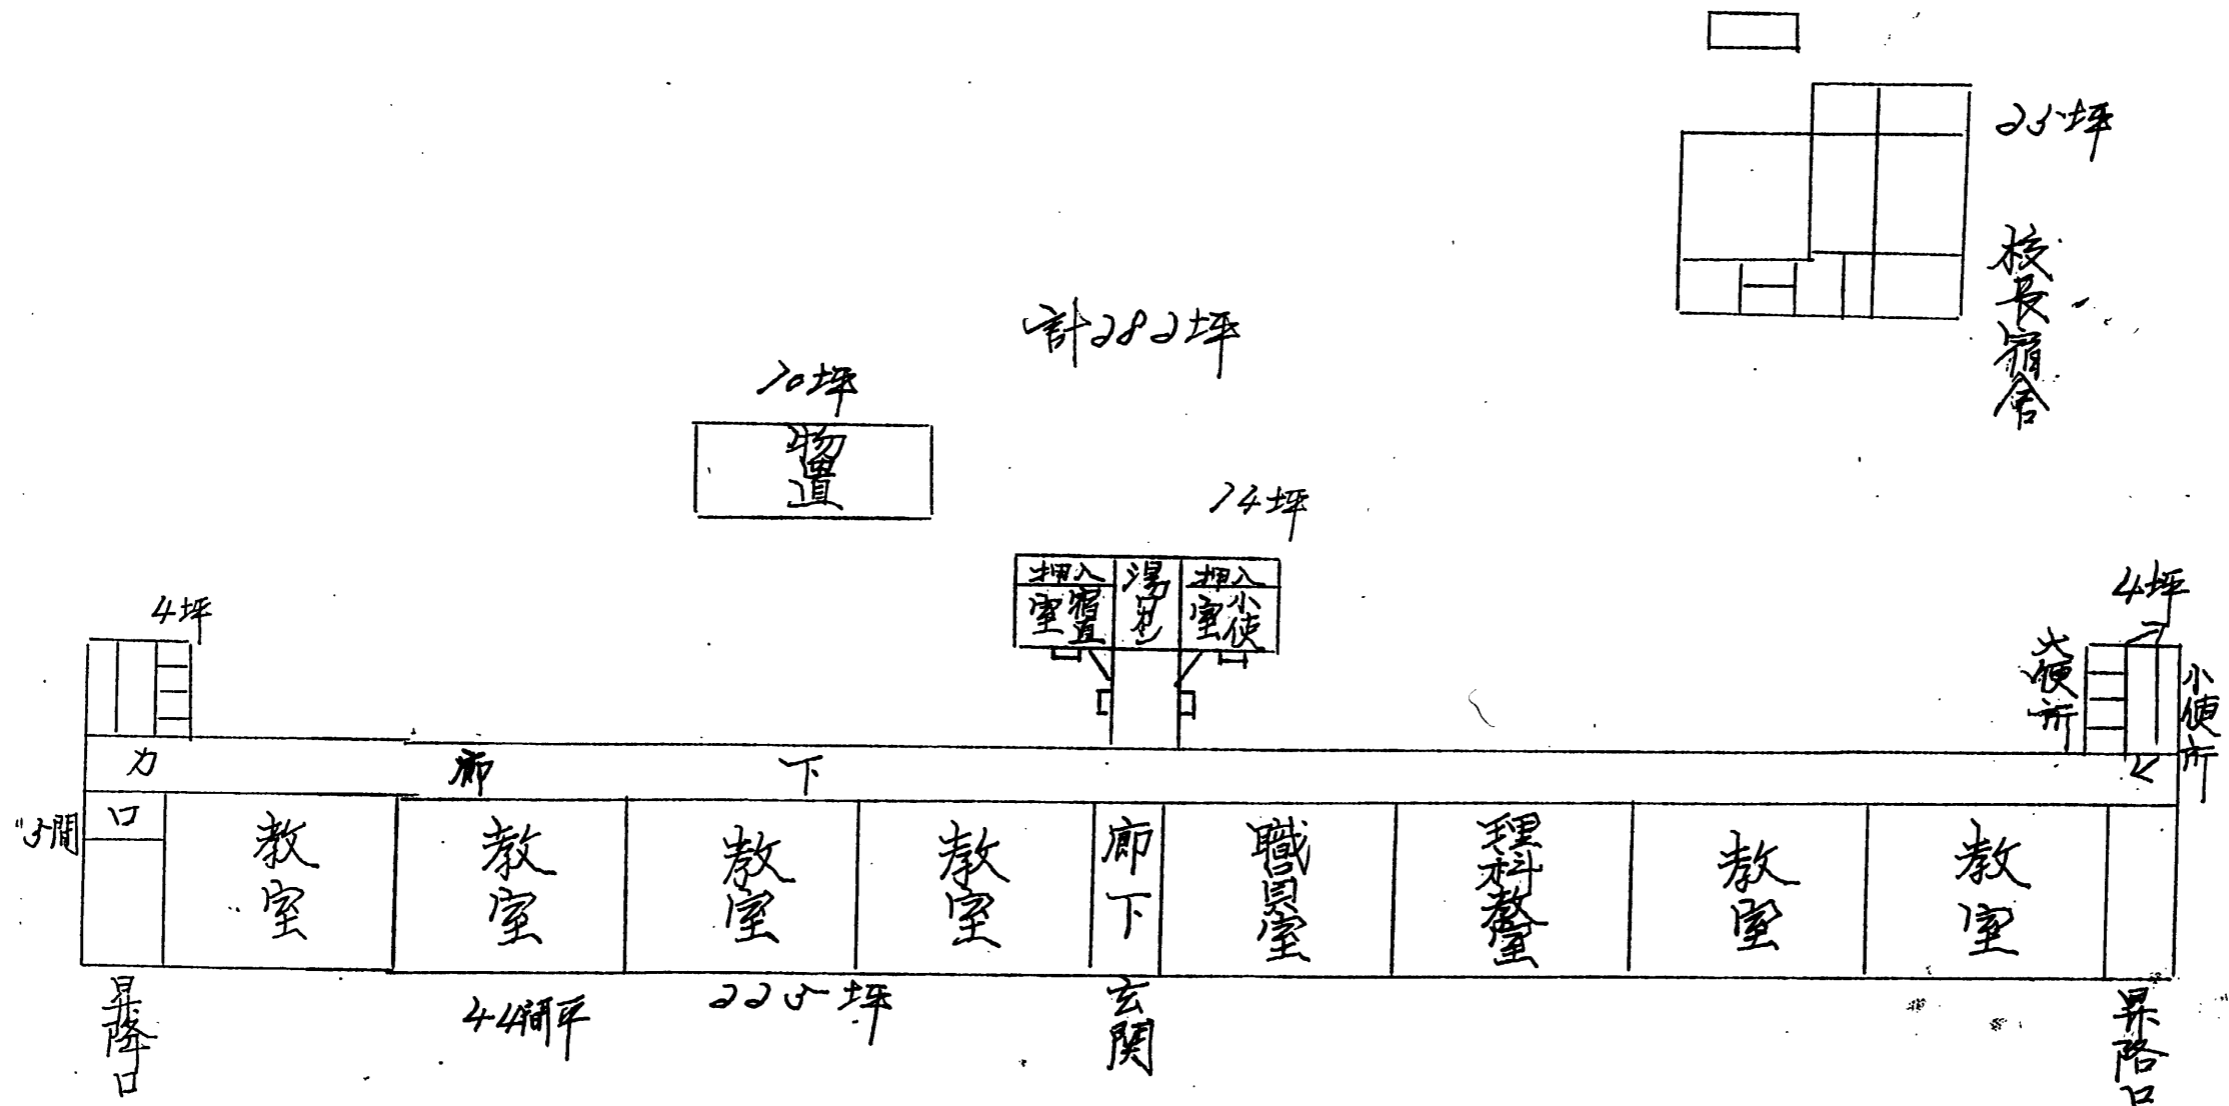 25坪
校長宿舎
計282坪
10坪
物置
14坪
押入
宿直室
湯呑
押入
小使室
4坪
4坪
大便所
小便所
廊下
5間
教室
教室
教室
教室
廊下
職員室
理科教室
教室
教室
昇降口
44間半
225坪
玄関
昇降口